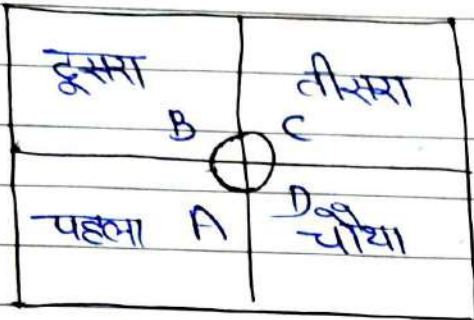 दूसरा तीसरा
B C
पहला A D
चौथा